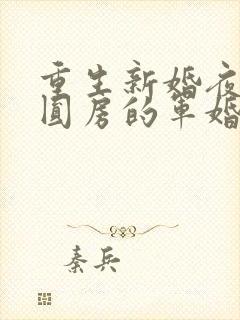 重生新婚夜
圆房的军婚
秦兵